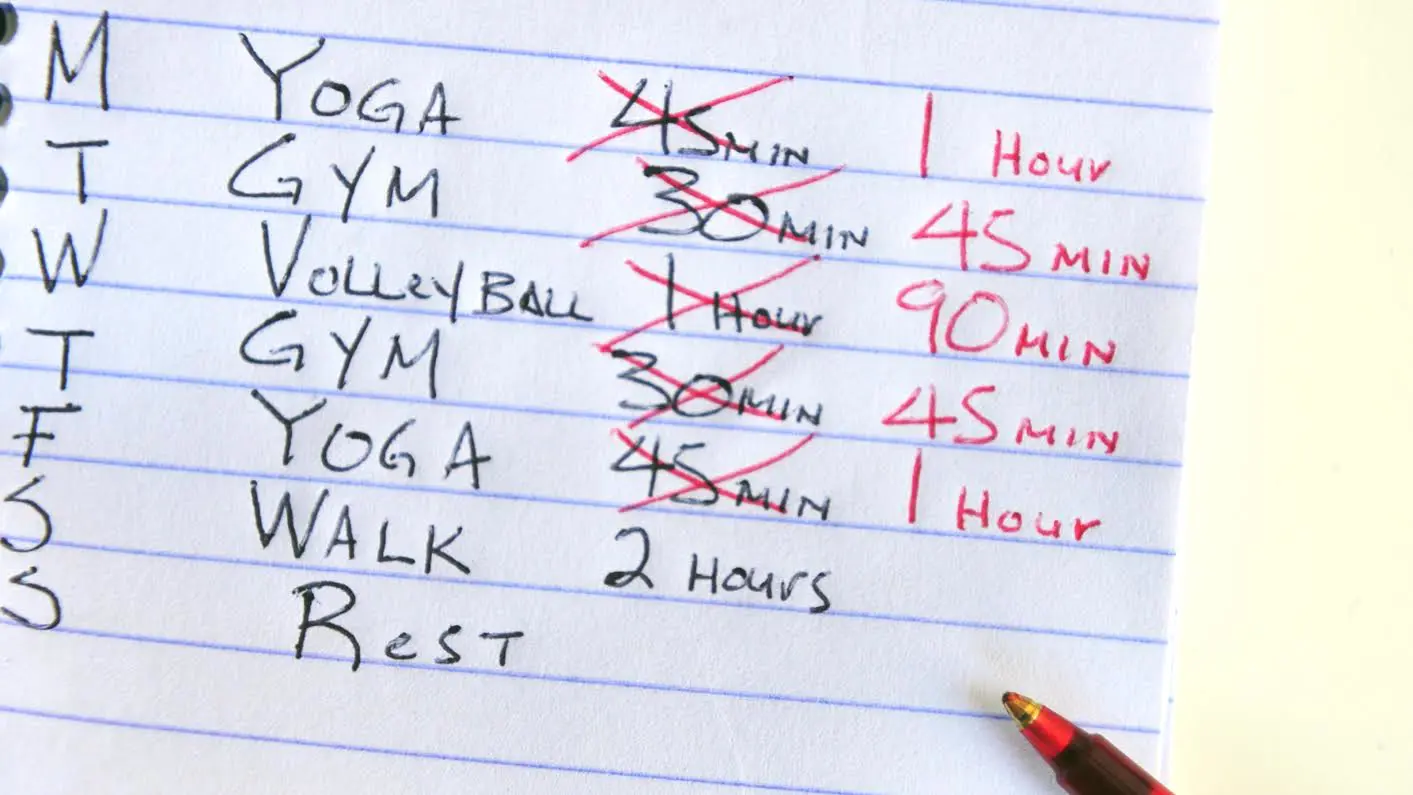 M YOGA 45 MIN 1 HOUR
T GYM 30 MIN 45 MIN
W VOLLEYBALL 1 HOUR 90 MIN
T GYM 30 MIN 45 MIN
F YOGA 45 MIN 1 HOUR
S WALK 2 HOURS
S REST